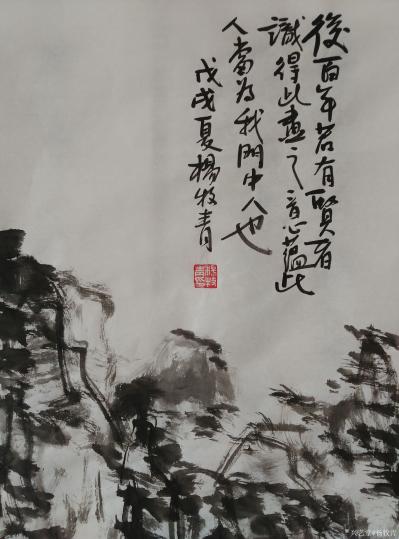 後百年若有賢者
識得此畫之意蘊此
人當為我門中人也
戊戌夏楊牧青
@杨牧青